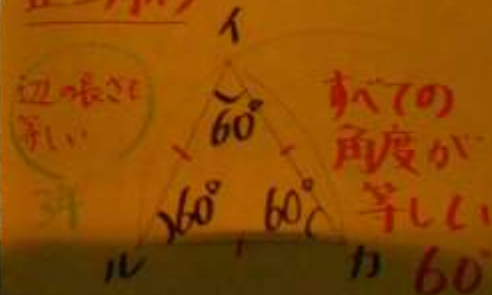 イ
辺の長さも
等しい
60°
すべての
角度が
等しい
60°
60°
60°
ル
カ